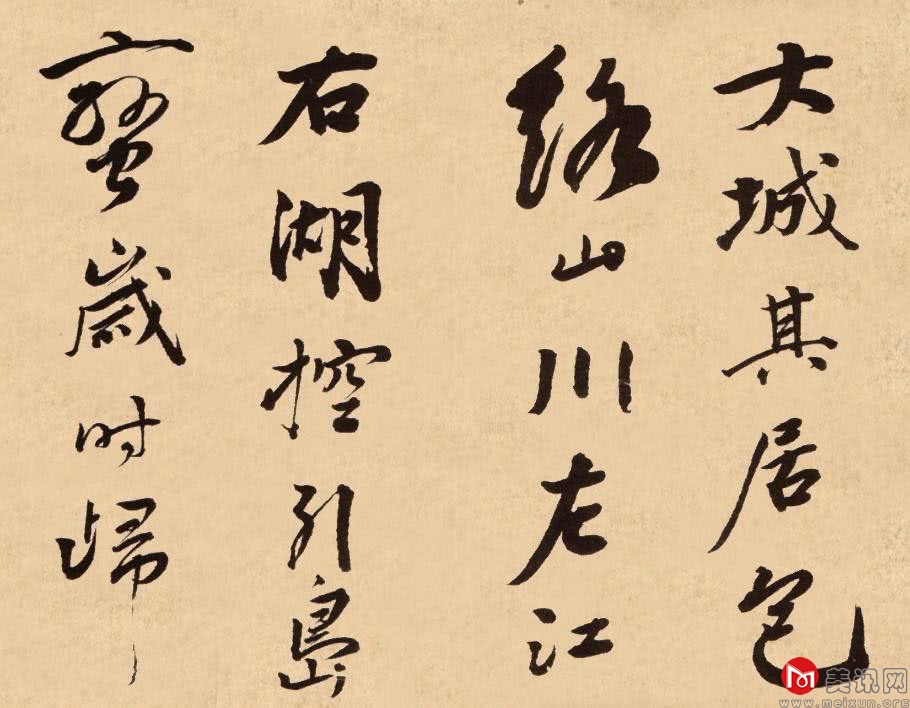 大城其居包
絡山川左江
右湖控引島
蠻歲时歸
美讯网
www.meixun.org